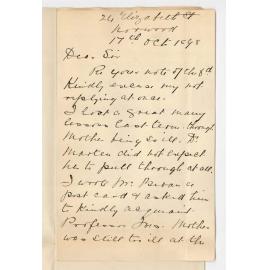 24 Elizabeth St
Norwood
17th Oct 1898
Dear Sir
Re your note of the 8th
Kindly excuse my not
replying at once.
I lost a great many
lessons last term through
Mother being so ill. Dr
Marten did not expect
her to pull through at all.
I wrote Mr. a
post card & asked him
to kindly acquaint
Professor Ives Mother
was still too ill at the